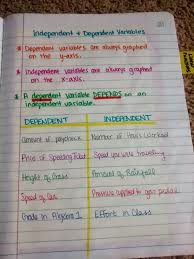 Independent & Dependent Variables
* Dependent variables are always graphed
on the y-axis.
* Independent variables are always graphed
on the x-axis.
* A dependent variable DEPENDS on an
independent variable.
DEPENDENT INDEPENDENT
Amount of paycheck Number of Hours Worked
Price of Speeding Ticket Speed you were traveling
Height of Grass Amount of Rainfall
Speed of Car Pressure applied to gas pedal
Grade in Algebra 1 Effort in Class